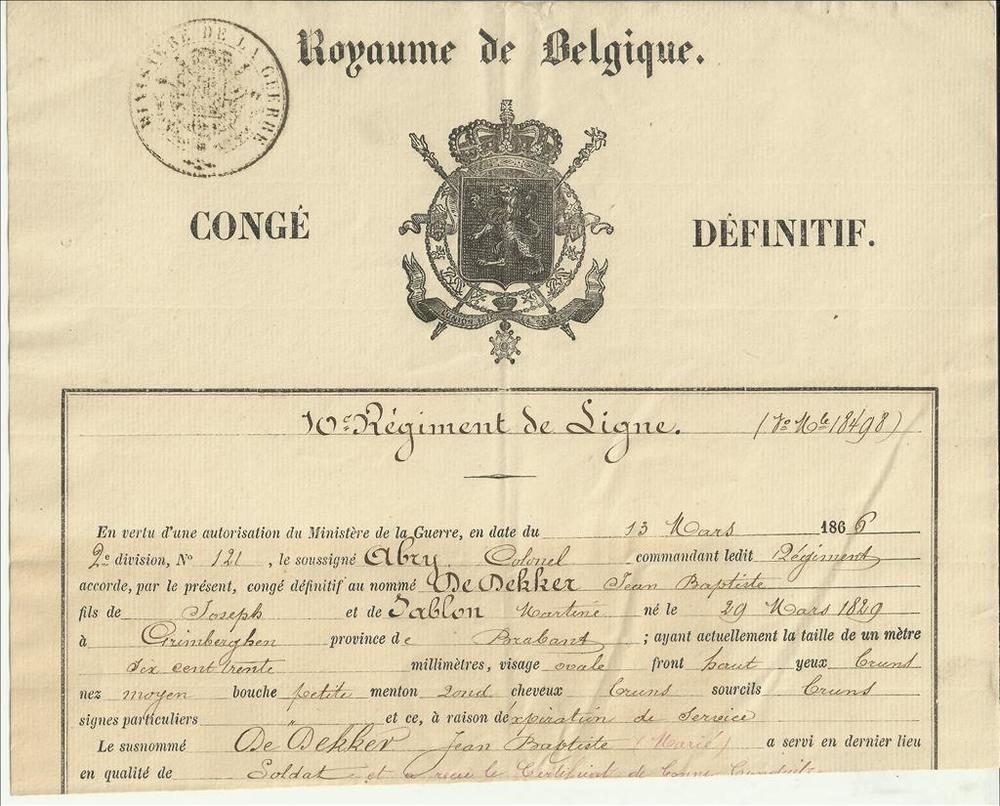 Royaume de Belgique.
MINISTÈRE DE LA GUERRE
CONGÉ DÉFINITIF.
L'UNION FAIT LA FORCE
10e Régiment de Ligne. (No Mle 18498)
En vertu d'une autorisation du Ministère de la Guerre, en date du 13 Mars 1866
2e division, No 121, le soussigné Abry Colonel commandant ledit Régiment
accorde, par le présent, congé définitif au nommé De Dekker Jean Baptiste
fils de Joseph et de Tablon Martine né le 29 Mars 1829
à Grimberghen province de Brabant ; ayant actuellement la taille de un mètre
six cent trente millimètres, visage ovale front haut yeux bruns
nez moyen bouche petite menton rond cheveux bruns sourcils bruns
signes particuliers " et ce, à raison d'expiration de service
Le susnommé De Dekker Jean Baptiste (Marié) a servi en dernier lieu
en qualité de Soldat et a reçu le Certificat de bonne Conduite